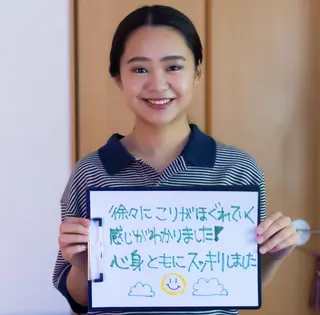 徐々にこりがほぐれていく
感じがわかりました!
心身ともにスッキリしました